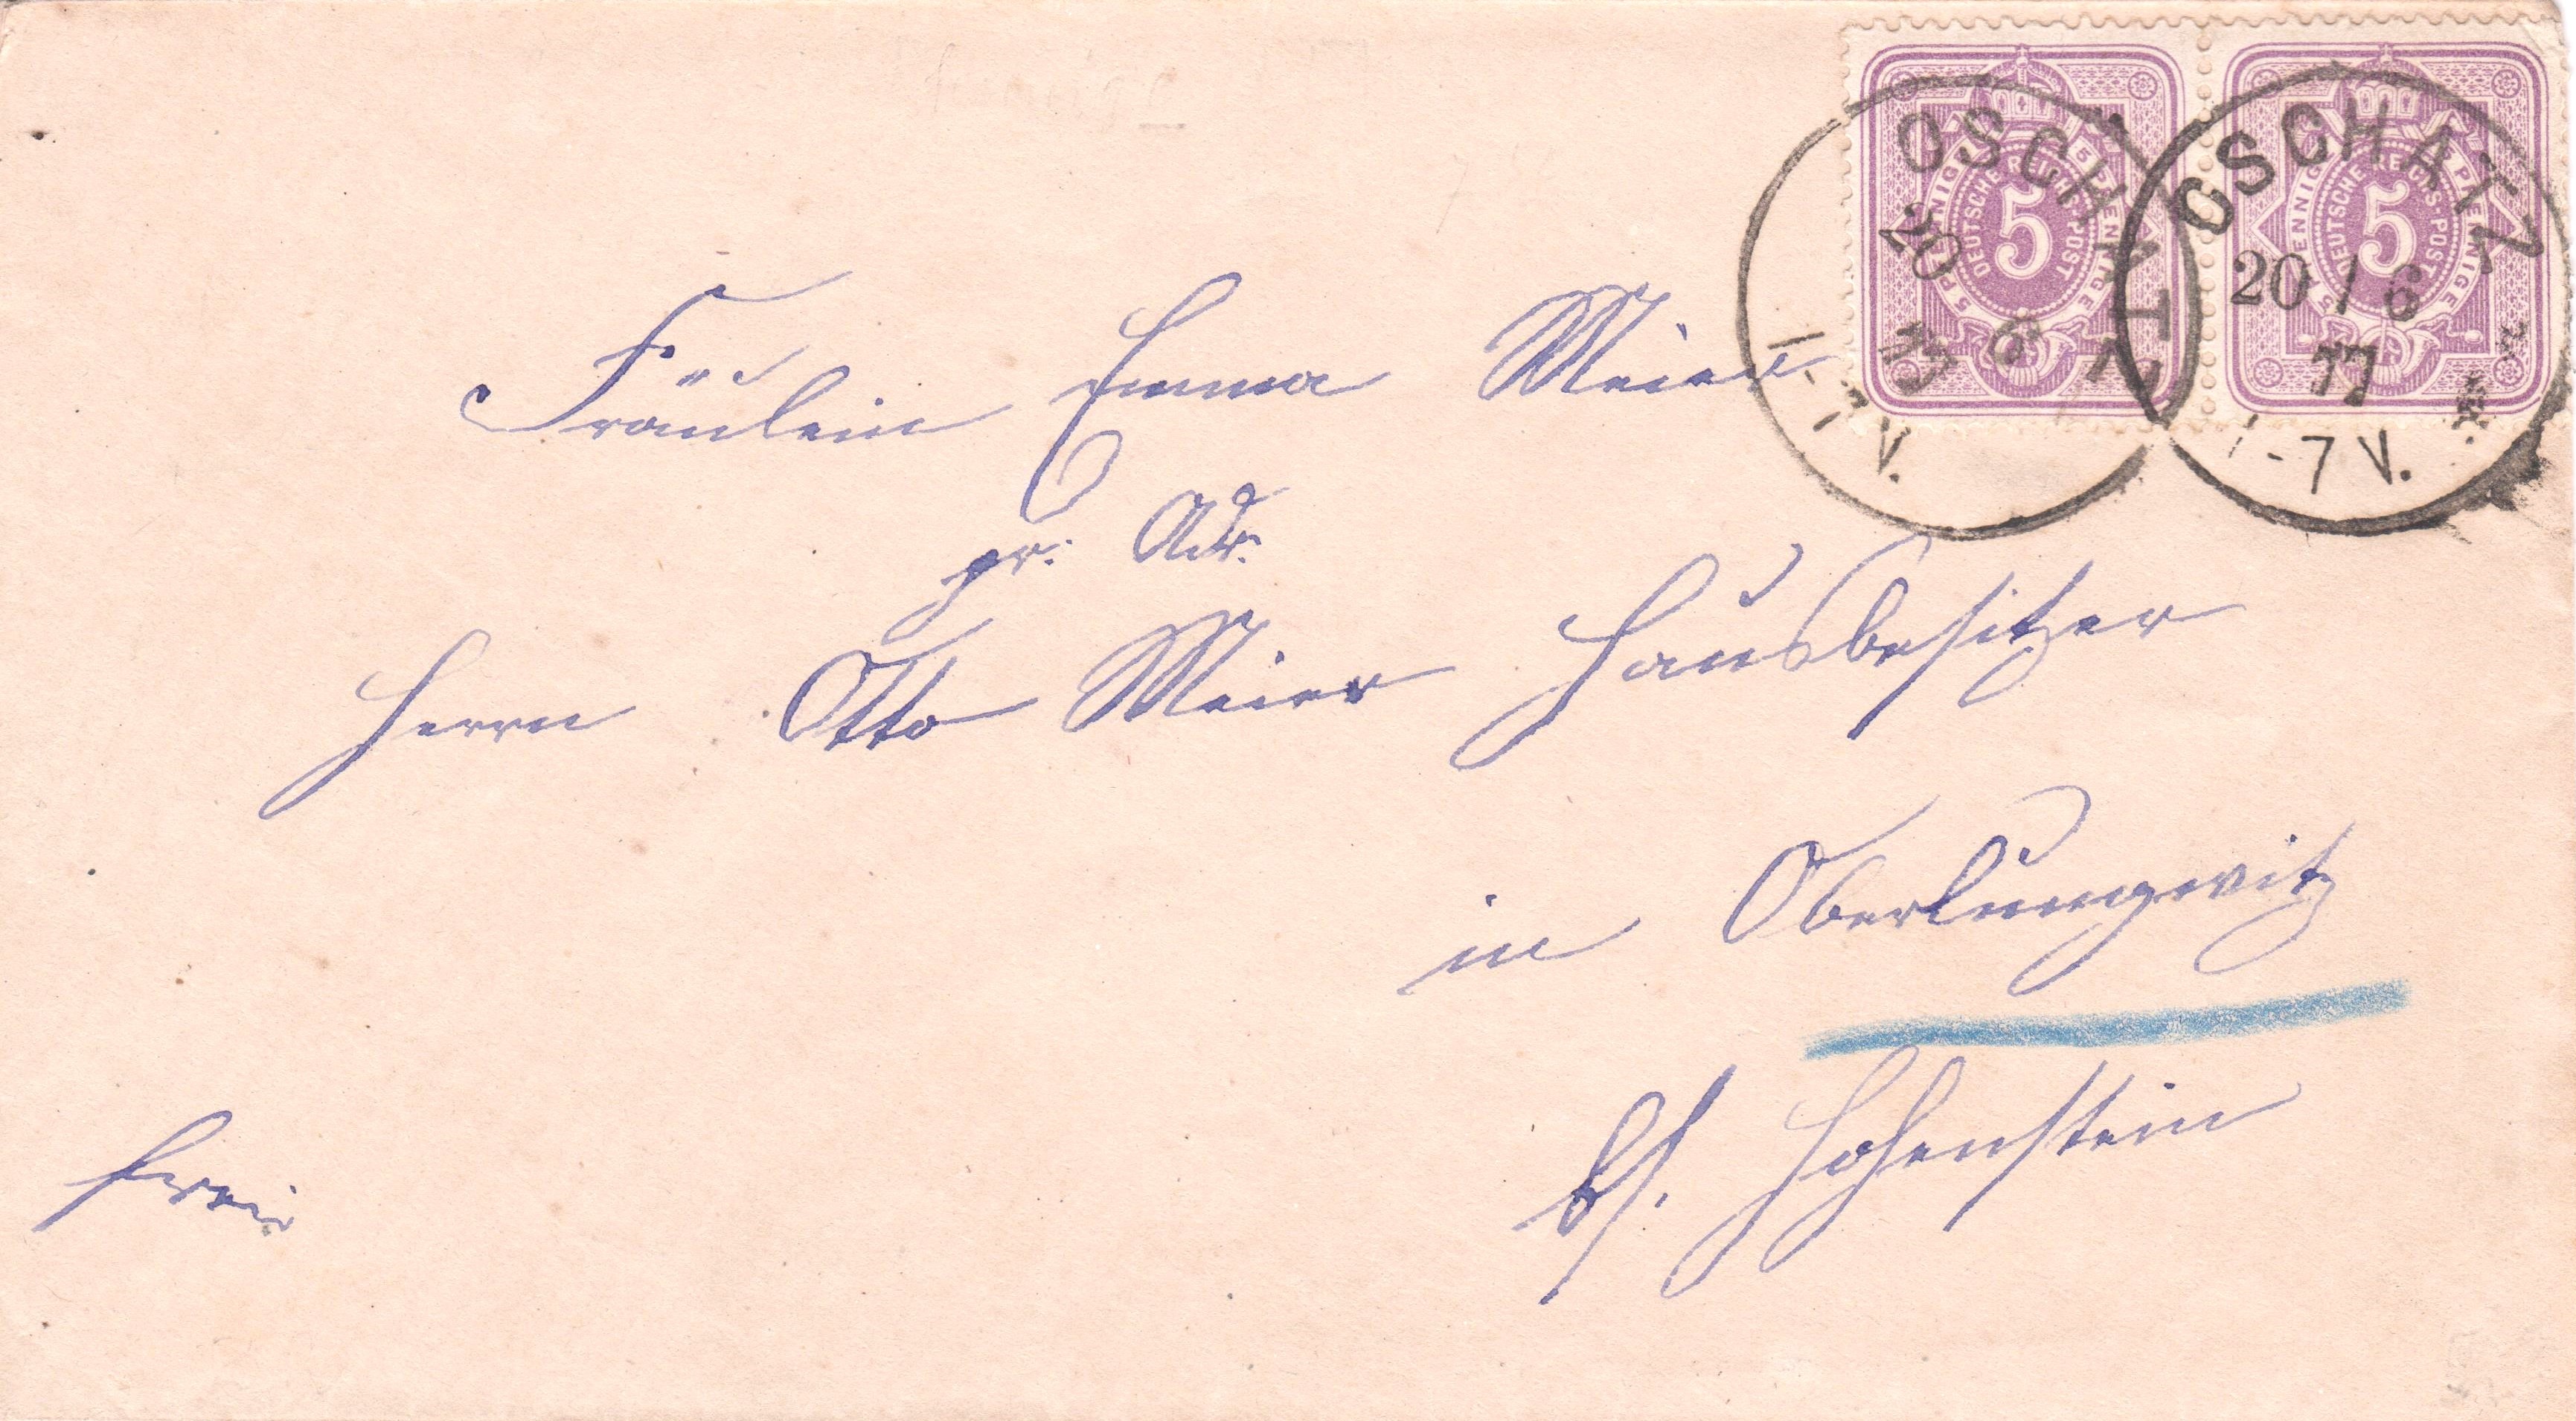 5 PFENNIGE 5 PFENNIGE
DEUTSCHE REICHS-POST
5
5 PFENNIGE 5 PFENNIGE
DEUTSCHE REICHS-POST
5
OSCHATZ
20 6
77
-7 V.
OSCHATZ
20 / 6
77
-7 V.
Fräulein Emma Meier
pr: Adr:
Herrn Otto Meier Hausbesitzer
in Oberlungwitz
b/. Hohenstein
frei